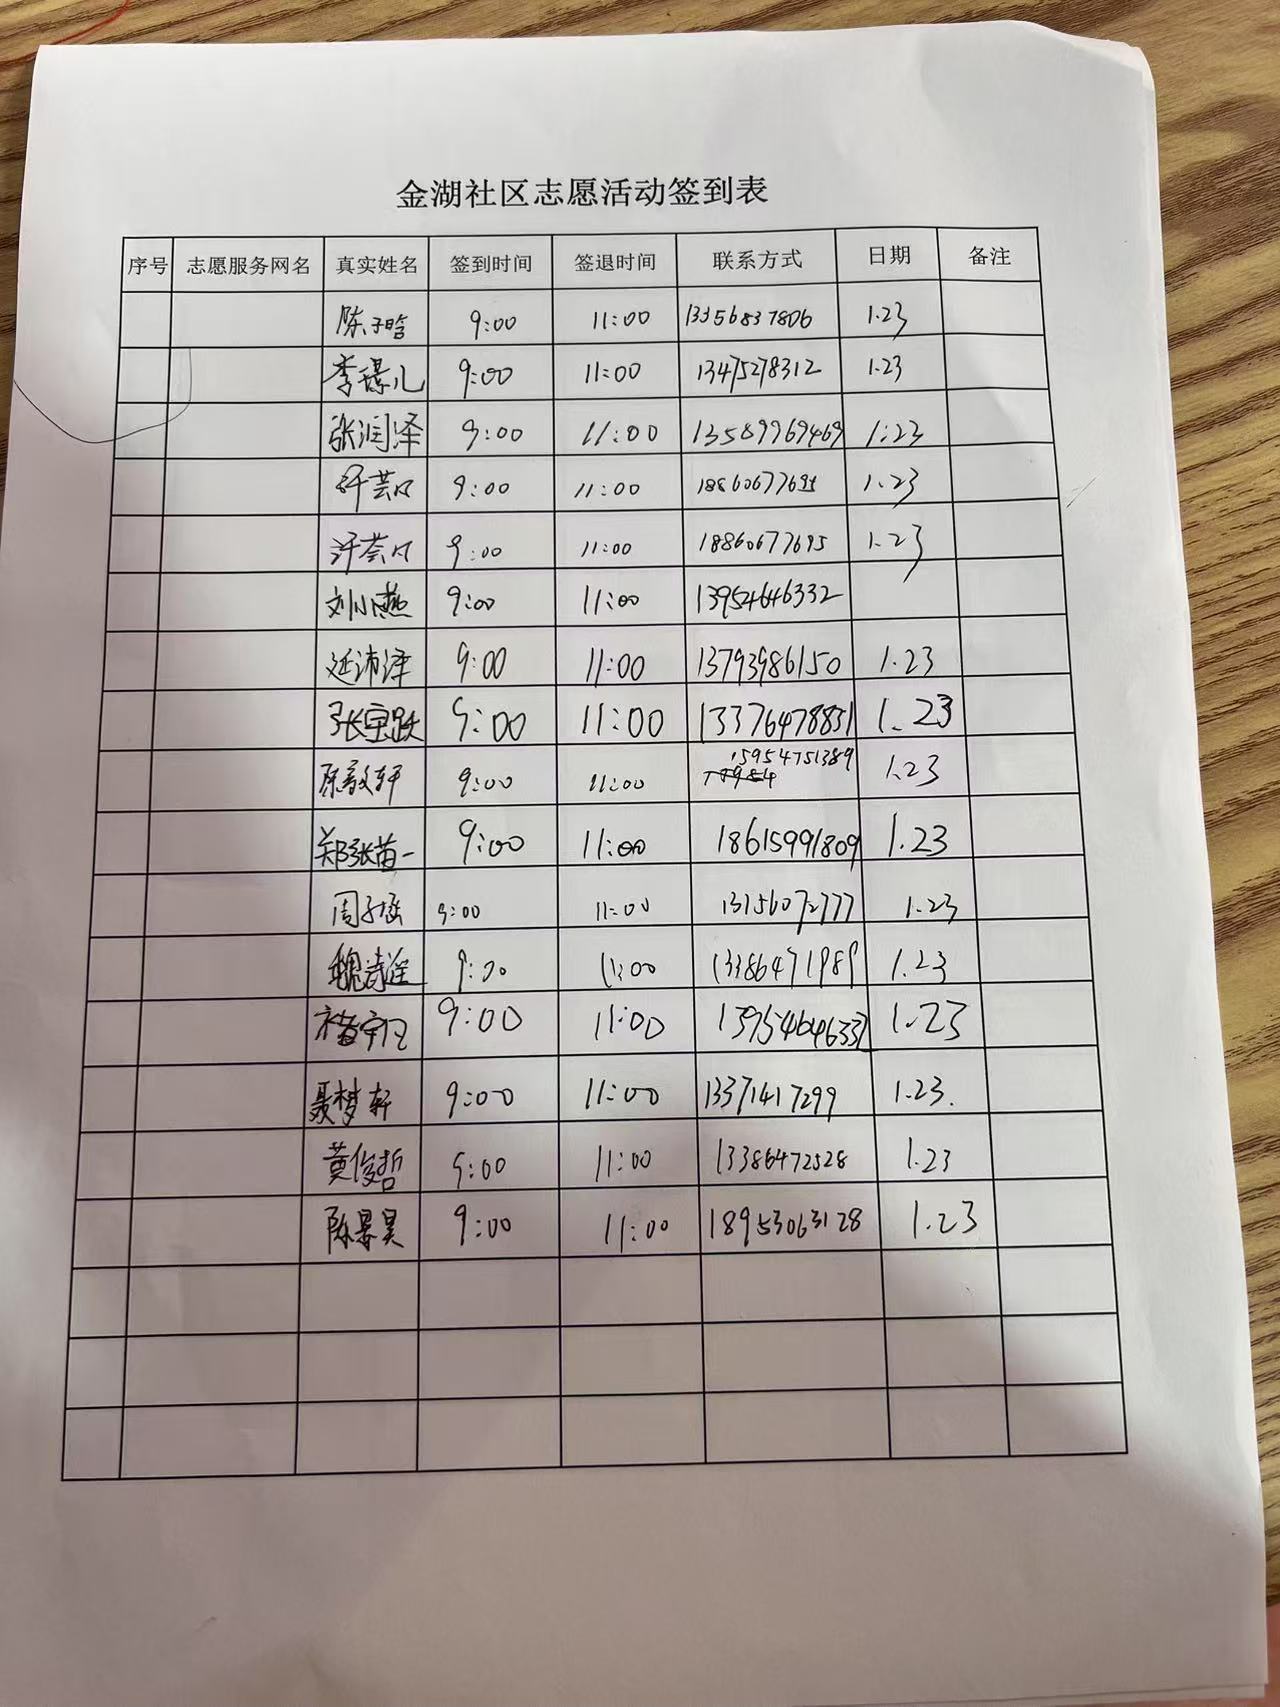 金湖社区志愿活动签到表
序号 志愿服务网名 真实姓名 签到时间 签退时间 联系方式 日期 备注
陈子晗 9:00 11:00 13356837806 1.23
李璟儿 9:00 11:00 13475278312 1.23
张润泽 9:00 11:00 13589969469 1:23
9:00 11:00 1.23
9:00 11:00 18860677695 1.23
刘小燕 9:00 11:00 13954646332
延沛泽 9:00 11:00 13793986150 1.23
张宝跃 9:00 11:00 13376478851 1.23
陈毅轩 9:00 11:00 15954751389 1.23
郑张苗一 9:00 11:00 18615991809 1.23
周子涵 9:00 11:00 13156072777 1.23
魏诗遥 9:00 11:00 13386471989 1.23
9:00 11:00 1.23
聂梦轩 9:00 11:00 13371417299 1.23.
黄俊哲 9:00 11:00 13386472528 1.23
陈景昊 9:00 11:00 18953063128 1.23